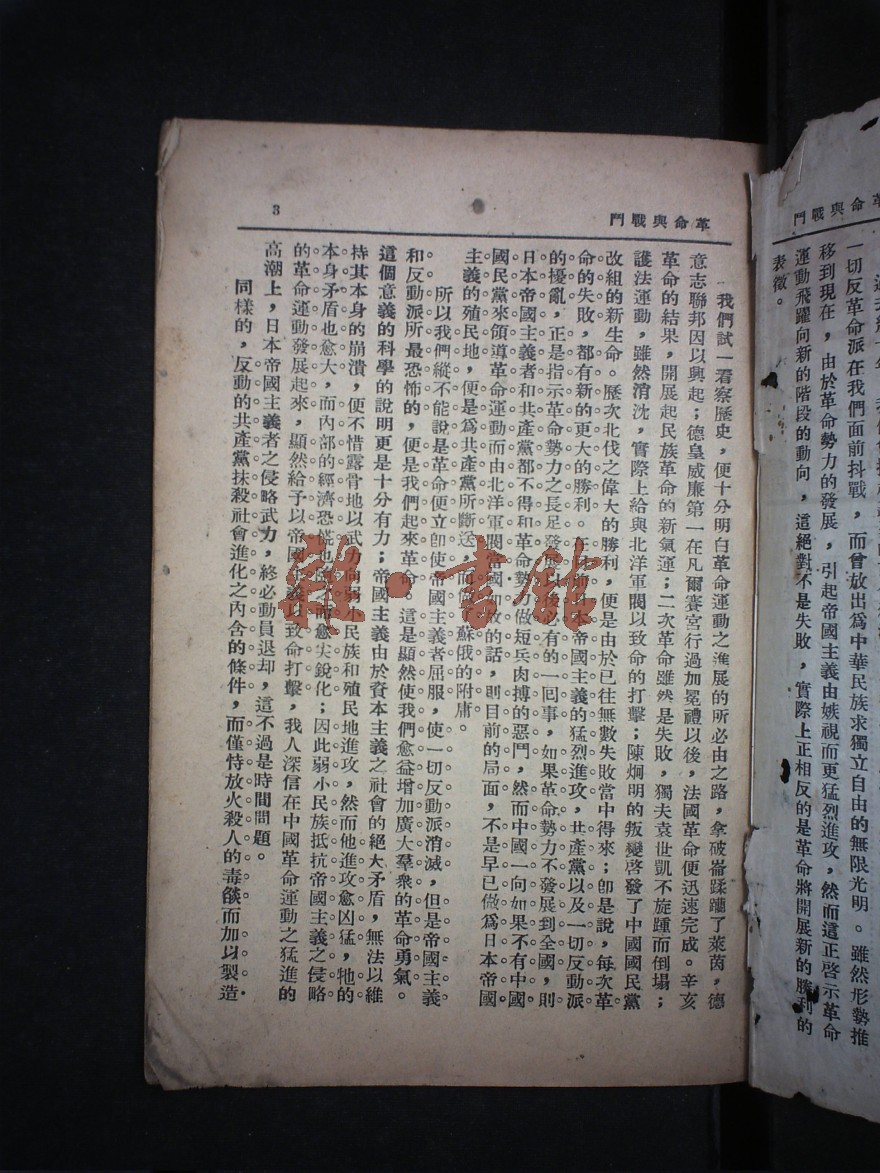 革命與戰鬥
一切反革命派在我們面前抖戰，而曾放出為中華民族求獨立自由的無限光明。雖然形勢推
移到現在，由於革命勢力的發展，引起帝國主義由嫉視而更猛烈進攻，然而這正啓示革命
運動飛躍向新的階段的動向，這絕對不是失敗，實際上正相反的是革命將開展新的勝利的
表徵。
革命與戰鬥
3
我們試一看察歷史，便十分明白革命運動之進展的所必由之路，拿破崙蹂躪了萊茵，德
意志聯邦因以興起；德皇威廉第一在凡爾賽宮行過加冕禮以後，法國革命便迅速完成。辛亥
革命的結果，開展起民族革命的新氣運；二次革命雖然是失敗，獨夫袁世凱不旋踵而倒塌；
護法運動，雖然消沈，實際上給與北洋軍閥以致命的打擊；陳烱明的叛變啓發了中國國民黨
改組的新生命。歷次北伐之偉大的勝利，便是由於已往無數失敗當中得來；卽是說，每次革
命的失敗，都有新的更大的勝利。日本帝國主義的猛烈進攻，共產黨以及一切反動派
的擾亂，正是指示革命勢力之長足發展以後必有的一囘事，如果革命勢力不發展到全國，則
日本帝國主義者和共產黨都不得和革命勢力做短兵肉搏的惡鬥，然而中國一向如果不有中國
國民黨來領導革命運動而由北洋軍閥當國的話，則目前的局面，不是早已做為日本帝國
主義的殖民地，便是為共產黨所斷送，而做蘇俄的附庸。
所以我們縱不能說是革命便立卽使帝國主義者屈服，使一切反動派消滅，但是帝國主義
和反動派所最恐怖的，便是我們起來革命。這是顯然使我們愈益增加廣大羣衆的革命勇氣。
這個意義的科學的說明更是十分有力；帝國主義由於資本主義之社會的絕大矛盾，無法以維
持其本身的崩潰，便不惜露骨地以武力向弱小民族和殖民地進攻，然而他進攻愈凶猛，牠的
本身矛盾也愈大，而內部的經濟恐慌也愈尖銳化；因此弱小民族抵抗帝國主義之侵略
的革命運動發展起來，顯然給予以帝國主義以致命打擊，我人深信在中國革命運動之猛進的
高潮上，日本帝國主義者之侵略武力，終必動員退却，這不過是時間問題。
同樣的，反動的共產黨抹殺社會進化之內含的條件，而僅恃放火殺人的毒燄而加以製造
雜·書館